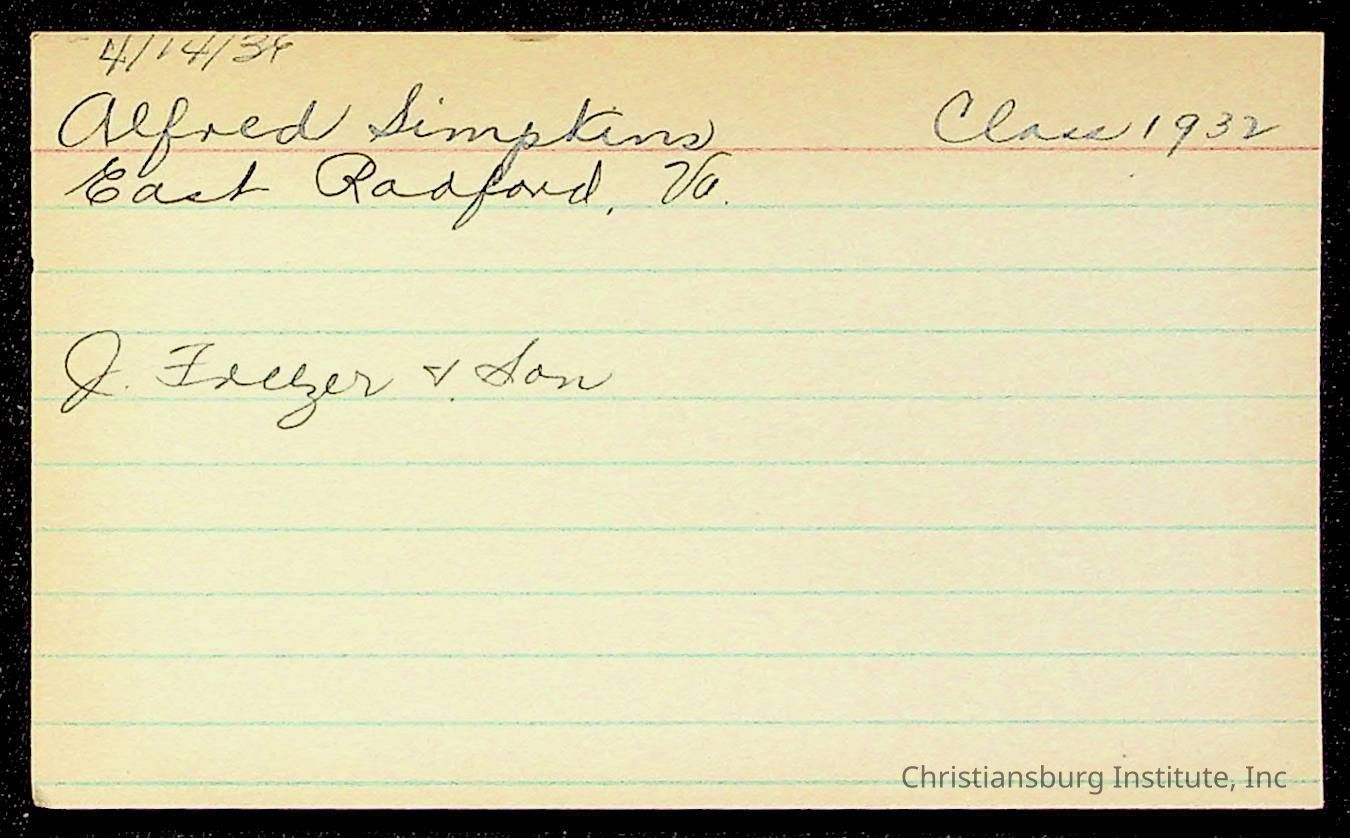 Alfred Simpkins Class 1932
East Radford, Va.
J. Freezer & Son
Christiansburg Institute, Inc